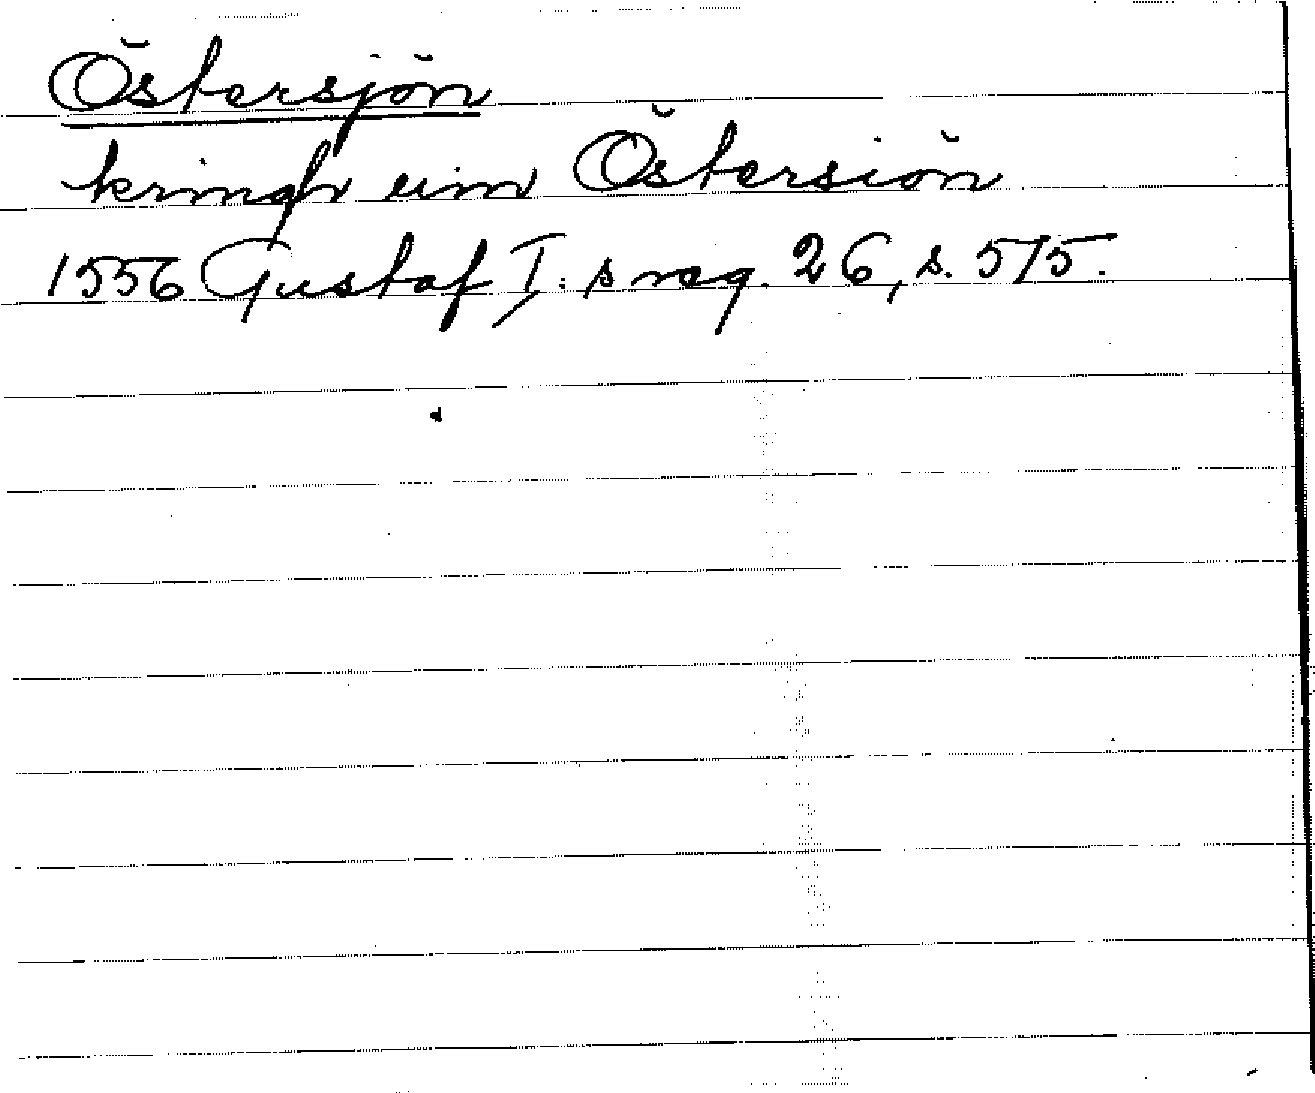 Östersjön
kringh um Östersiön
1556 Gustaf I:s reg. 26, s. 575.